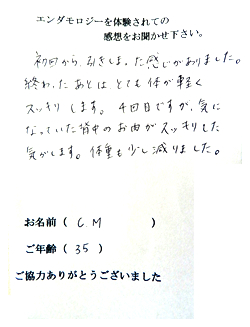 エンダモロジーを体験されての
感想をお聞かせ下さい。
初回から、引きしまった感じがありました。
終わったあとは、とても体が軽く
スッキリします。4回目ですが、気に
なっていた背中のお肉がスッキリした
気がします。体重も少し減りました。
お名前 ( C M )
ご年齢 ( 35 )
ご協力ありがとうございました